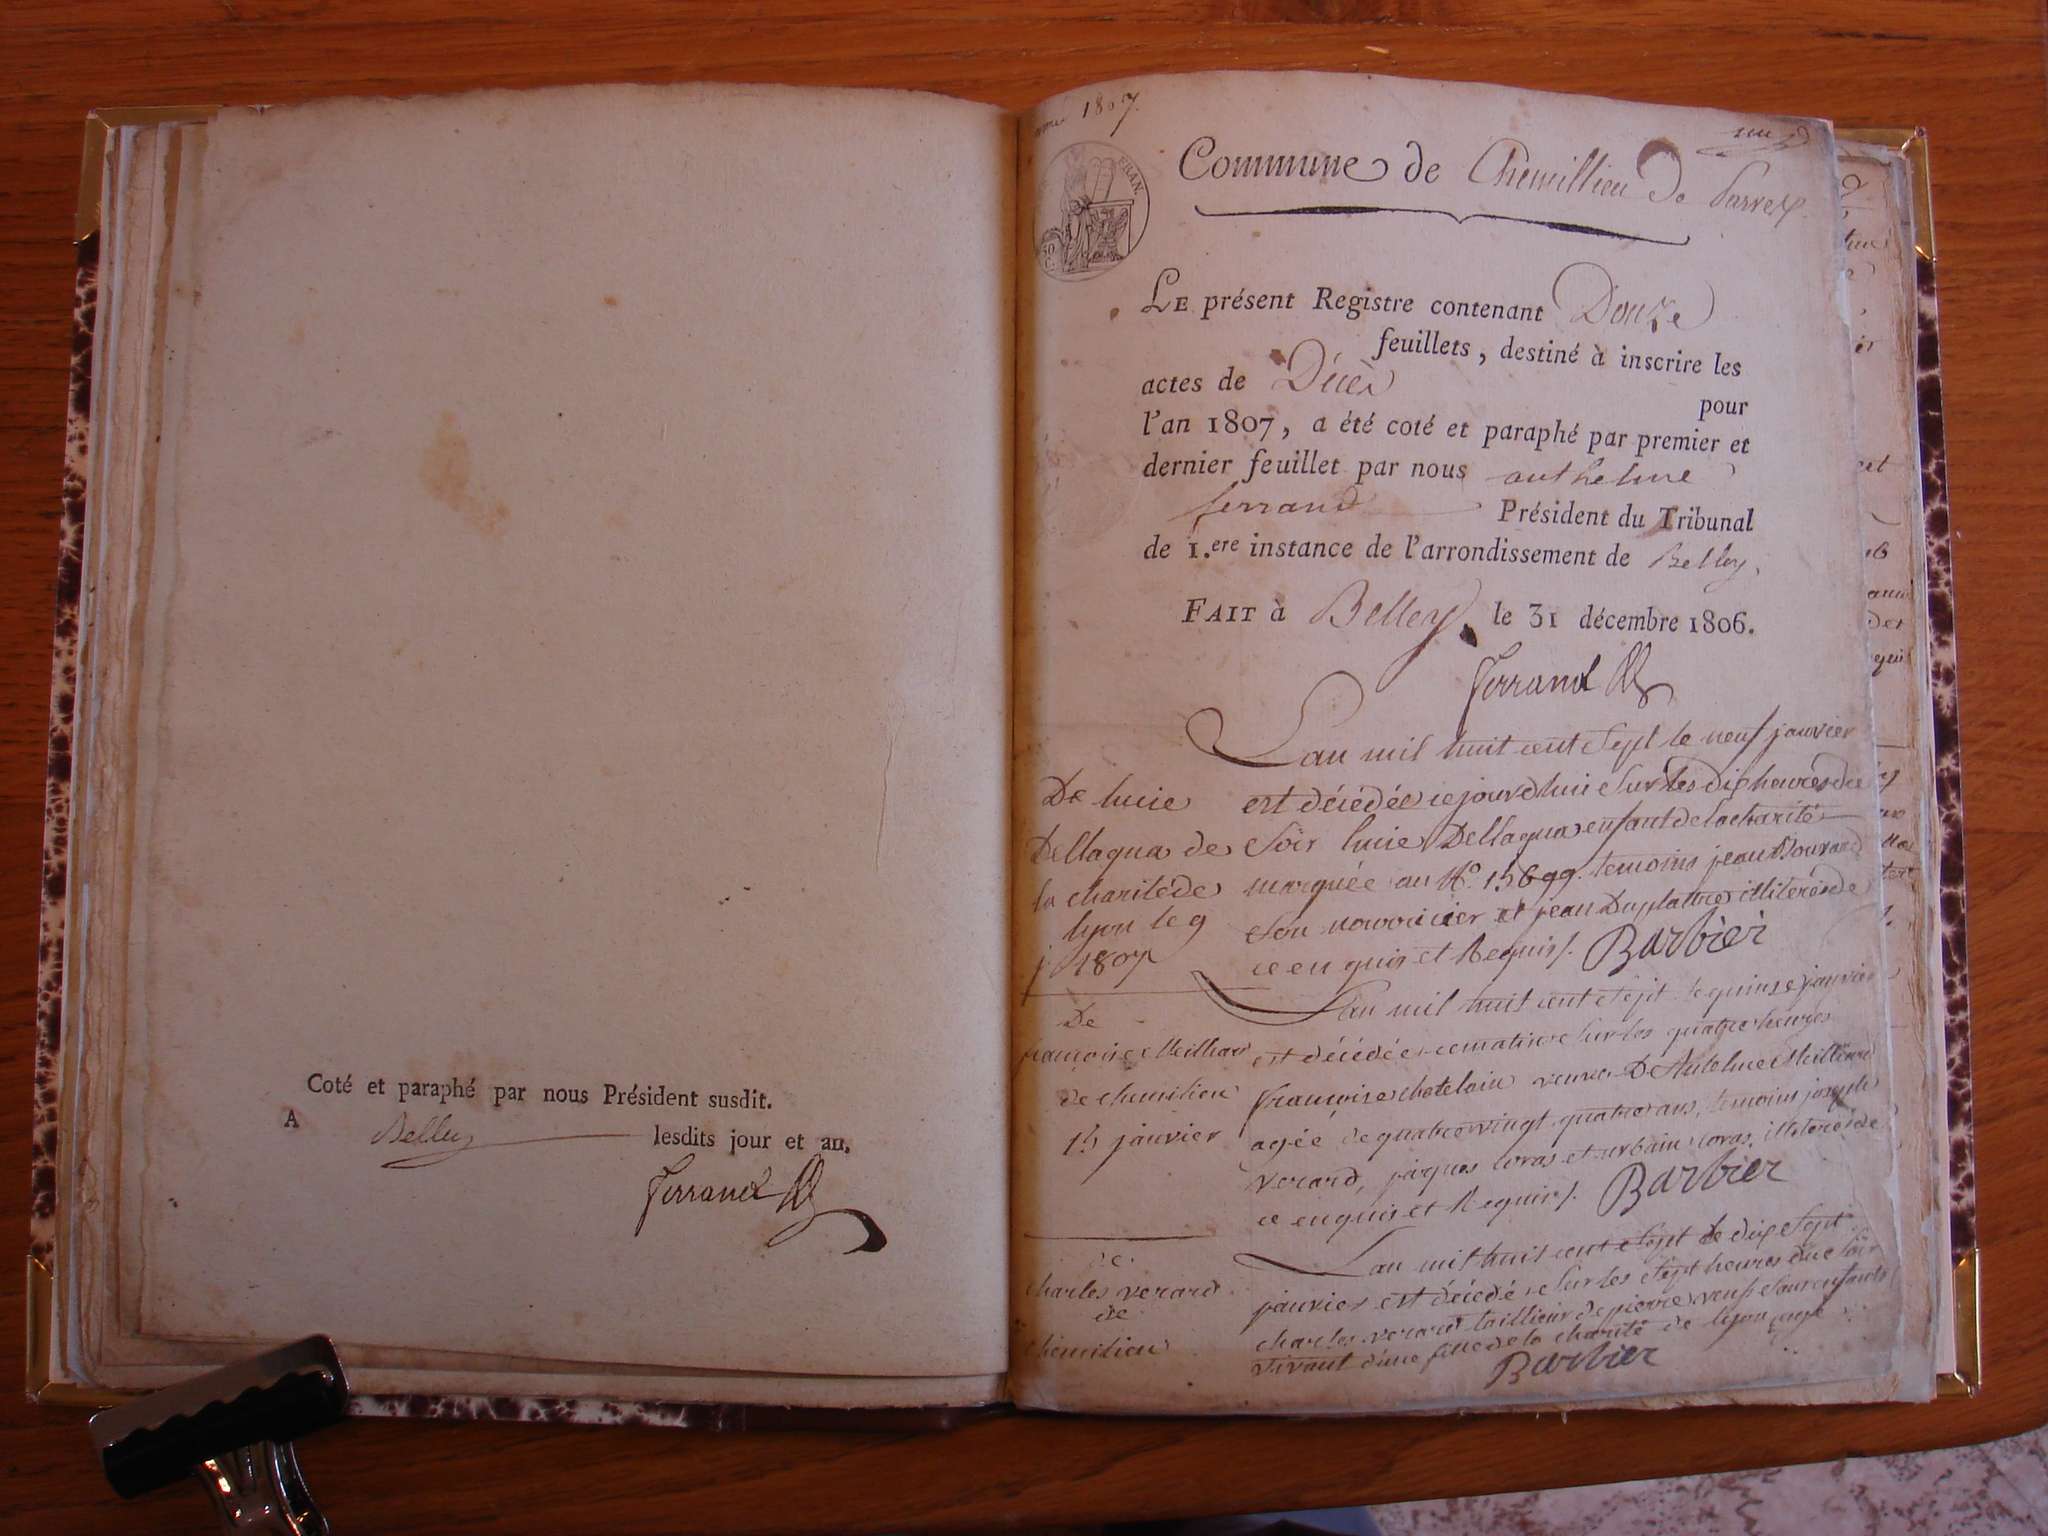 Coté et paraphé par nous Président susdit.
A Belley lesdits jour et an.
Ferrand
1807.
FRAN.
50
C.
Commune de Chemillieu de Parves
LE présent Registre contenant Douze
feuillets, destiné à inscrire les
actes de Décès
pour
l'an 1807, a été coté et paraphé par premier et
dernier feuillet par nous anthelme
ferrand Président du Tribunal
de 1.ere instance de l'arrondissement de Belley,
FAIT à Belley, le 31 décembre 1806.
Ferrand
Lan mil huit cent Sept le neuf janvier
De lucie
Dellaqua de
la charité de
lyon le 9
j 1807
est décédée cejourdhui Sur les dix heures du
Soir lucie Dellaqua enfant de la charité
marquée au No. 15699. temoins jean
Son nourricier et jean Duplattre illiterés de
ce enquis et Requis/. Barbier
Lan mil huit cent Sept le quinze janvier
De
françoise Meilland
de chemilieu
15 janvier
est décédée cematin Sur les quatre heures
françoise chatelain veuve D'Antelme Meilland
agée de quatre vingt quatre ans, temoins joseph
verard, jaques loras et urbain loras, illiterés de
ce enquis et Requis/. Barbier
Lan mil huit cent Sept le dix Sept
de
charles verard
de
chemilieu
janvier est décédé Sur les Sept heures du Soir
charles verard taillieur de pierre veuf Sans enfants
vivant d'une fille de la charité de lyon agé
Barbier